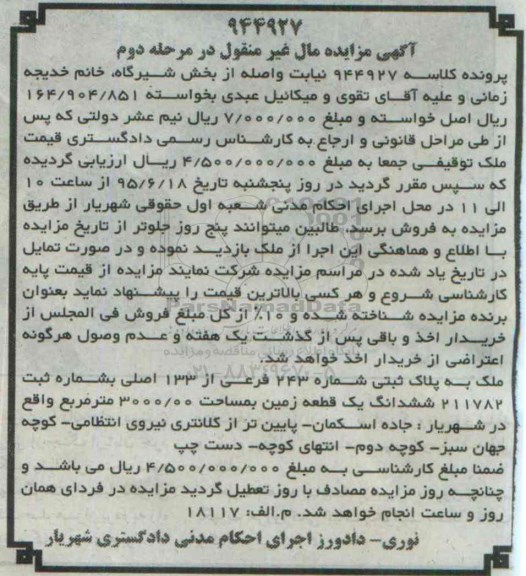 ۹۴۴۹۲۷
آگهی مزایده مال غیر منقول در مرحله دوم
پرونده کلاسه ۹۴۴۹۲۷ نیابت واصله از بخش شیرگاه، خانم خدیجه
زمانی و علیه آقای تقوی و میکائیل عبدی بخواسته ۱۶۴/۹۰۴/۸۵۱
ریال اصل خواسته و مبلغ ۷/۰۰۰/۰۰۰ ریال نیم عشر دولتی که پس
از طی مراحل قانونی و ارجاع به کارشناس رسمی دادگستری قیمت
ملک توقیفی جمعا به مبلغ ۴/۵۰۰/۰۰۰/۰۰۰ ریال ارزیابی گردیده
که سپس مقرر گردید در روز پنجشنبه تاریخ ۹۵/۶/۱۸ از ساعت ۱۰
الی ۱۱ در محل اجرای احکام مدنی شعبه اول حقوقی شهریار از طریق
مزایده به فروش برسد. طالبین میتوانند پنج روز جلوتر از تاریخ مزایده
با اطلاع و هماهنگی این اجرا از ملک بازدید نموده و در صورت تمایل
در تاریخ یاد شده در مراسم مزایده شرکت نمایند مزایده از قیمت پایه
کارشناسی شروع و هر کسی بالاترین قیمت را پیشنهاد نماید بعنوان
برنده مزایده شناخته شده و ۱۰٪ از کل مبلغ فروش فی المجلس از
خریدار اخذ و باقی پس از گذشت یک هفته و عدم وصول هرگونه
اعتراضی از خریدار اخذ خواهد شد.
ملک به پلاک ثبتی شماره ۲۴۳ فرعی از ۱۳۳ اصلی بشماره ثبت
۲۱۱۷۸۲ ششدانگ یک قطعه زمین بمساحت ۳۰۰۰/۰۰ مترمربع واقع
در شهریار: جاده اسکمان- پایین تر از کلانتری نیروی انتظامی- کوچه
جهان سبز- کوچه دوم- انتهای کوچه- دست چپ
ضمنا مبلغ کارشناسی به مبلغ ۴/۵۰۰/۰۰۰/۰۰۰ ریال می باشد و
چنانچه روز مزایده مصادف با روز تعطیل گردید مزایده در فردای همان
روز و ساعت انجام خواهد شد. م.الف: ۱۸۱۱۷
نوری- دادورز اجرای احکام مدنی دادگستری شهریار